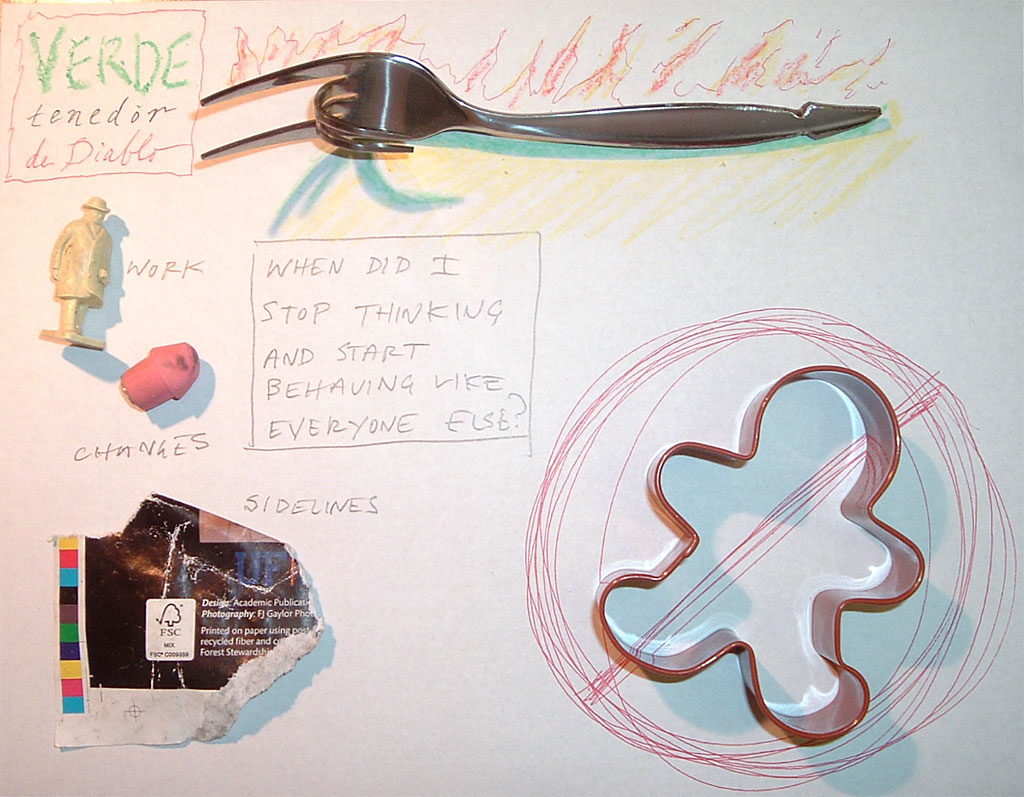 VERDE
tenedor
del Diablo
WORK
CHANGES
WHEN DID I
STOP THINKING
AND START
BEHAVING LIKE
EVERYONE ELSE?
SIDELINES
UF
Design: Academic Publicati
Photography: FJ Gaylor Phot
Printed on paper using post
recycled fiber and co
Forest Stewardsh
FSC
MIX
FSC® C009359